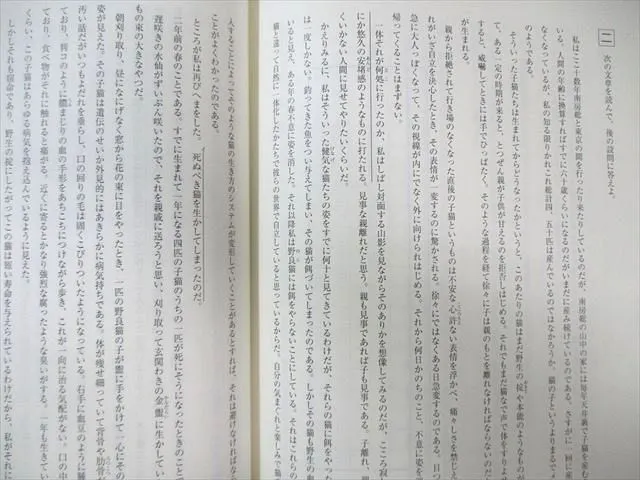 二 次の文章を読んで、後の設問に答えよ。
私はここ十数年南房総と東京の間を行ったり来たりしているのだが、南房総の山中の家には毎年天井裏で子猫を産む
いる。人間の年齢に換算すればすでに六十歳くらいになるのだがいまだに産み続けているのである。さすがに一回に産
なくなっているが、私の知る限りかれこれ総計四、五十匹は産んでいるのではなかろうか。猫の子というよりまるで
のようである。
そういった子猫たちは生まれてからどうなったかというと、このあたりの猫はまだ野生の掟や本能のようなものが
て、ある一定の時期が来ると、とつぜん親が子供が甘えるのを拒否しはじめる。それでもまだ猫なで声で体をすりよせ
すると、威嚇してときには手でひっぱたく。そのような過程を経て徐々に子は親のもとを離れなければならないのだ
が生まれる。
親から拒絶されて行き場のなくなった直後の子猫というものは不安な心許ない表情を浮かべ、痛々しさを禁じえ
れがいざ自立を決心したとき、その表情が一変するのに驚かされる。徐々にではなくある日急変するのである。目つ
急に大人っぽくなって、その視線が内にでなく外に向けられはじめる。それから何日かのちのこと、不意に姿を
帰ってくることはまずない。
一体それが何処に行ったのか、私はしばし対面する山影を見ながらそのありかを想像してみるのだが、こころ寂
にか悠久の安堵感のようなものに打たれる。見事な親離れだと思う。親も見事であれば子も見事である。子離れ、親
くいかない人間に見せてやりたいくらいだ。
かえりみるに、私はそういった健気な猫たちの姿をすでに何十と見てきているわけだが、それらの猫に餌をやった
は一度しかない。釣ってきた魚をつい与えてしまい、その猫が餌づいてしまったのである。しかしその猫も野生の血
いると見え、ある年の春不意に姿を消した。それ以降私は野良猫には餌をやらないことにしている。それはこれらの
猫と違って自然に一体化したかたちで彼らの世界で自立していると思っているからだ。自分の気まぐれと楽しみで猫
入することによってそのような猫の生き方のシステムが変形していくことがあるとすれば、それは避けなければな
ことがよくわかったのである。
ところが私は再びへまをした。
死ぬべき猫を生かしてしまったのだ。
二年前の春のことである。すでに生まれて一年になる四匹の子猫のうちの一匹が死にそうになったときのこと
遅咲きの水仙がずいぶん咲いたので、それを親戚に送ろうと思い、刈り取って玄関わきの金盥に生かしてい
もの束の大きなやつだ。
朝刈り取り、昼になにげなく窓から花の束に目をやったとき、一匹の野良猫の子が盥に手をかけて一心にその
姿が見えた。その子猫は遺伝のせいか外見的にはあきらかに病気持ちである。体が痩せ細っていて背骨や肋骨
汚い話だがいつもよだれを垂らし、口の回りの毛は固くこびりついたようになっている。右手に血豆のように腫
ており、判コのように膿まじりの血の手形をあちこちにつけながら歩き、これが一向に治る気配がない。口の中
ており、食べ物がそれに触れると痛がる。近くに寄るとかなり強烈な腐ったような臭いがする。一年も生きてい
くらい、この子猫はあらゆる病気を抱え込んでいるように見えた。
しかしそれも宿命であり、野生の掟にしたがってこの猫は短い寿命を与えられているわけだから、私がそれに